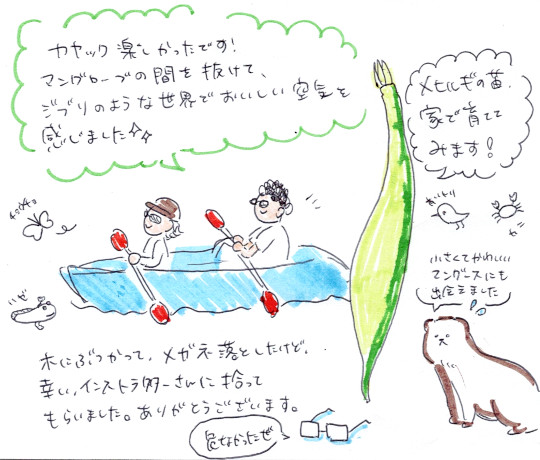 カヤック楽しかったです!
マングローブの間を抜けて、
ジブリのような世界でおいしい空気を
感じました
メヒルギの苗、
家で育てて
みます!
小さくてかわいい
マングースにも
出会えました
木にぶつかって、メガネ落としたけど、
幸い、インストラクターさんに拾って
もらいました。ありがとうございます。
危なかったぜ